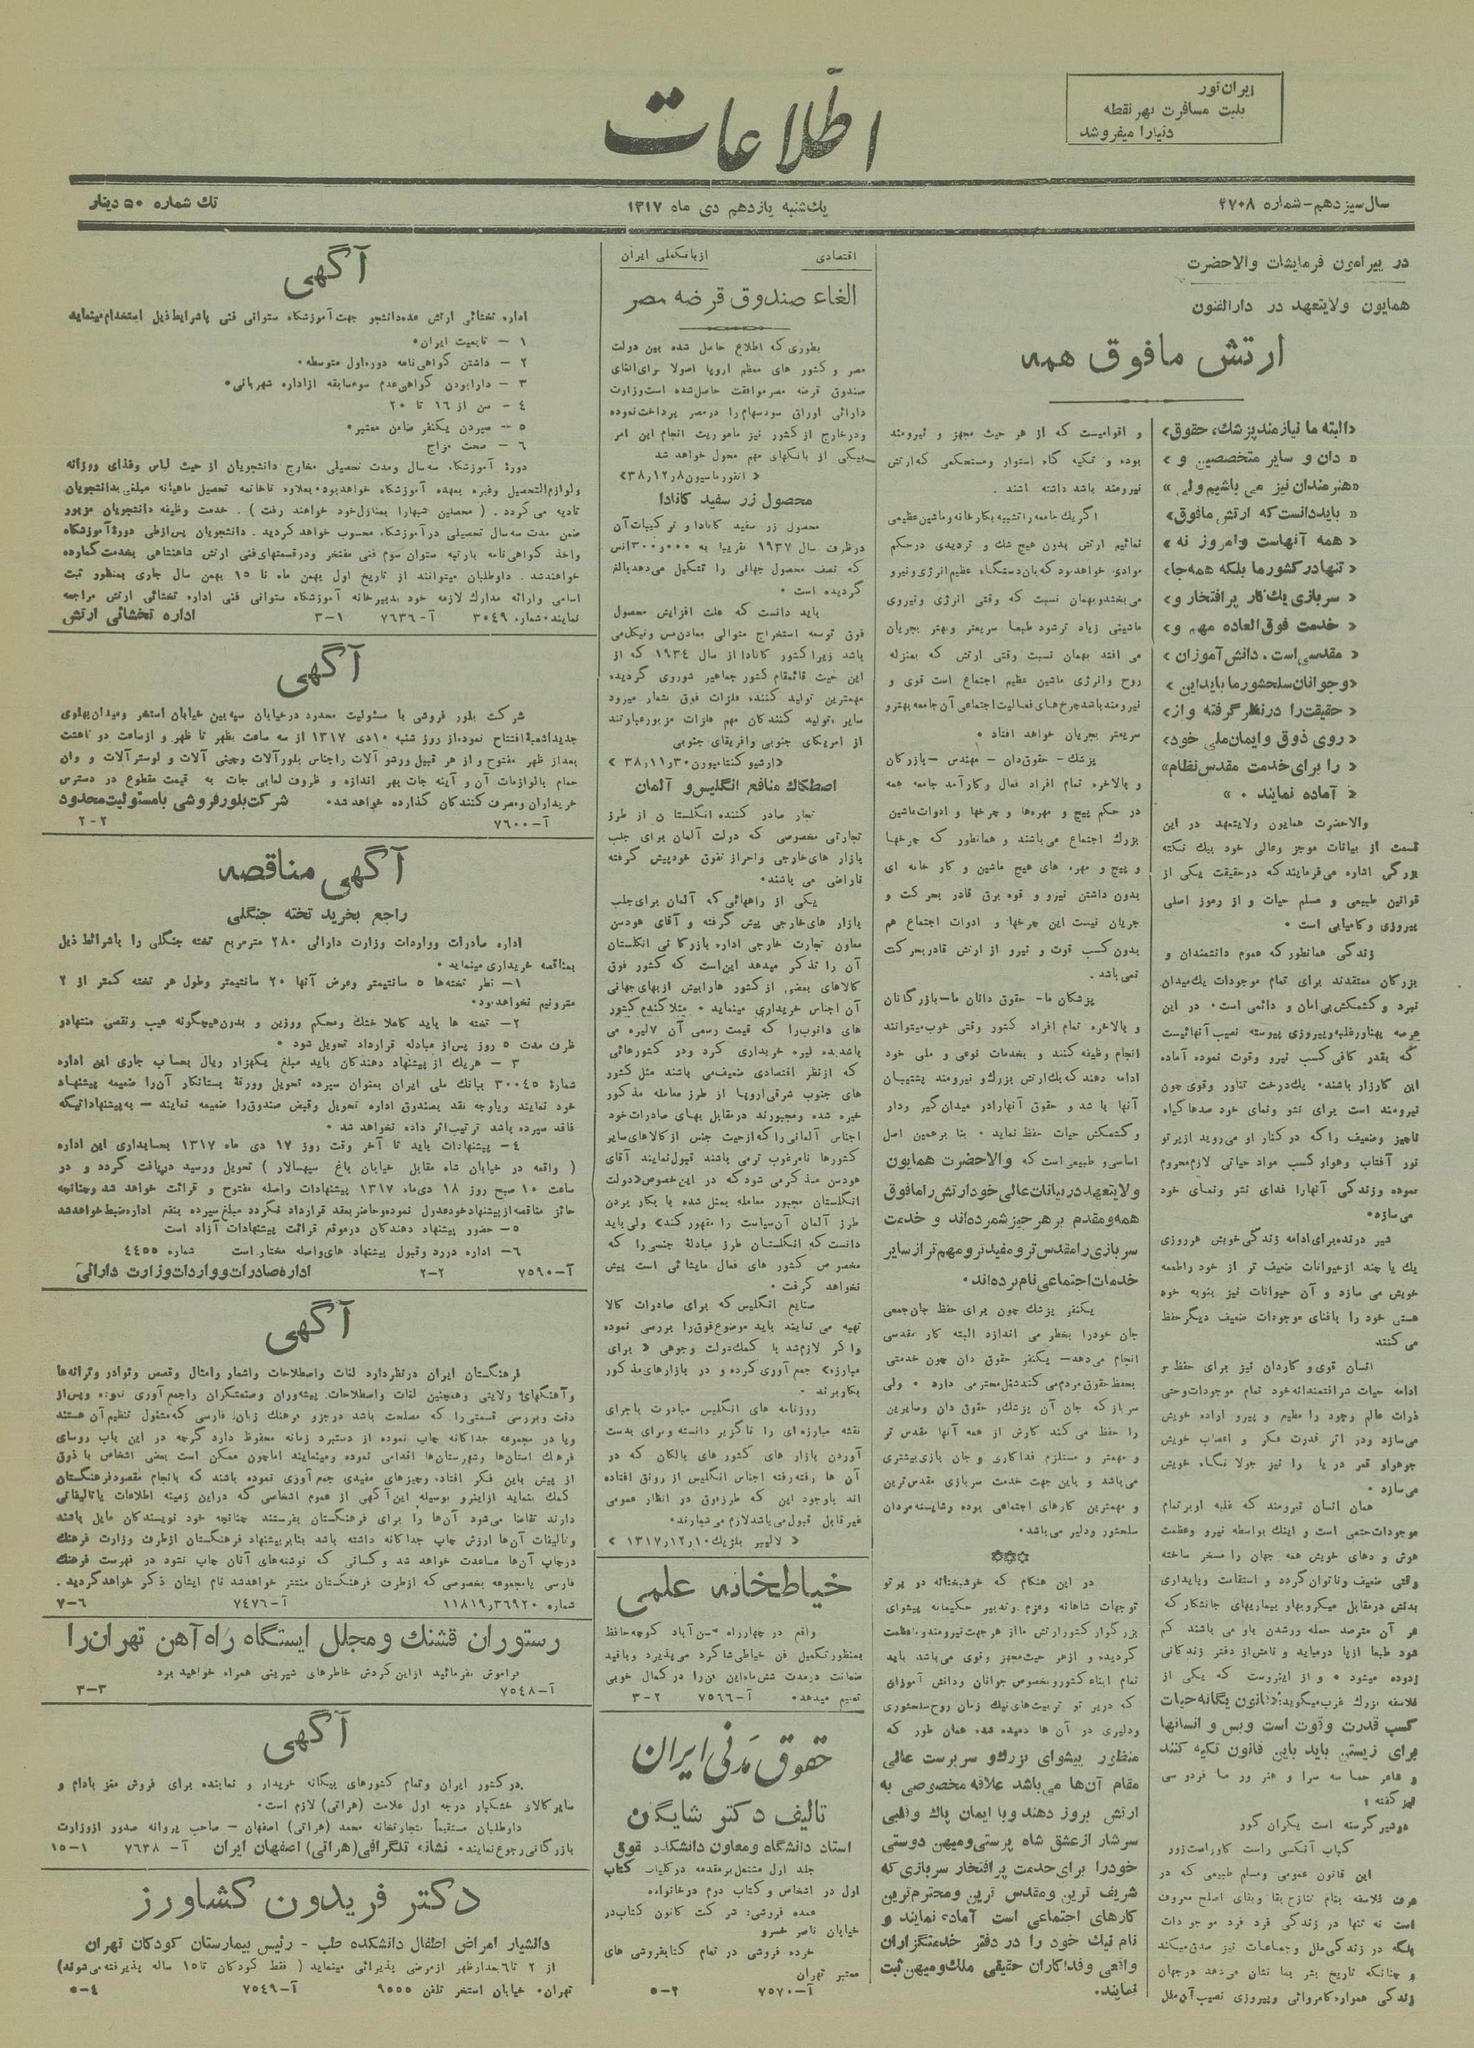 ایران تور
بلیت مسافرت بهر نقطه
دنیا را میفروشد
اطلاعات
سال سیزدهم - شماره ۳۷۰۸
یک شنبه یازدهم دی ماه ۱۳۱۷
تک شماره ۵۰ دینار
در پیرامون فرمایشات والاحضرت
همایون ولایتعهد در دارالفنون
ارتش مافوق همه
«البته ما نیازمند پزشک، حقوق»
« دان و سایر متخصصین و »
«هنرمندان نیز می باشیم ولی»
« باید دانست که ارتش مافوق»
« همه آنهاست و امروز نه »
«تنها در کشور ما بلکه همه جا»
« سربازی یک کار پر افتخار و»
« خدمت فوق العاده مهم و»
« مقدسی است. دانش آموزان »
«و جوانان سلحشور ما باید این »
« حقیقت را در نظر گرفته و از»
« روی ذوق و ایمان ملی خود»
« را برای خدمت مقدس نظام»
« آماده نمایند . »
والاحضرت همایون ولایتعهد در این
قسمت از بیانات موجز و عالی خود بیک نکته
بزرگی اشاره می فرمایند که در حقیقت یکی از
قوانین طبیعی و مسلم حیات و از رموز اصلی
پیروزی و کامیابی است.
زندگی همانطور که عموم دانشمندان و
بزرگان معتقدند برای تمام موجودات یک میدان
نبرد و کشمکش بی امان و دائمی است. در این
عرصه پهناور غلبه و پیروزی پیوسته نصیب آنهائیست
که بقدر کافی کسب نیرو و قوت نموده آماده
این کارزار باشند. یک درخت تناور و قوی چون
نیرومند است برای نشو و نمای خود صدها گیاه
ناچیز و ضعیف را که در کنار او می روید از پرتو
نور آفتاب و هوا و کسب مواد حیاتی لازم محروم
نموده و زندگی آنها را فدای نشو و نمای خود
می سازد.
شیر درنده برای ادامه زندگی خویش هر روزی
یک یا چند از حیوانات ضعیف تر از خود را طعمه
خویش می سازد و آن حیوانات نیز بنوبه خود
هستی خود را بافنای موجودات ضعیف دیگر حفظ
می کنند
انسان قوی و کاردان نیز برای حفظ و
ادامه حیات شرافتمندانه خود تمام موجودات و حتی
ذرات عالم وجود را مطیع و پیرو اراده خویش
می سازد و در اثر قدرت فکر و اعصاب خویش
جو هوا و قعر دریا را نیز جولانگاه خویش
می سازد.
همان انسان نیرومند که غلبه او بر تمام
موجودات حتمی است و اینک بواسطه نیرو و عظمت
هوش و دهای خویش همه جهان را مسخر ساخته
وقتی ضعیف و ناتوان گردد و استقامت و پایداری
بدنش در مقابل میکروبها و بیماریهای جانشکار که
هر آن مترصد حمله و رشدن باو می باشند کم
شود طبعا از پا در میاید و نامش از دفتر زندگانی
زدوده میشود . و از اینروست که یکی از
فلاسفه بزرگ غرب میگوید: قانون یگانه حیات
کسب قدرت و قوت است و بس و انسانها
برای زیستن باید باین قانون تکیه کنند
و شاعر حماسه سرا و هنرور ما فردوسی
نیز گفته :
دو شیر گرسنه است یکران گور
کباب آنکسی راست کاوراست زور
این قانون عمومی و مسلم طبیعی که در
عرف فلاسفه بنام تنازع بقا و بقای اصلح معروف
است نه تنها در زندگی فرد فرد موجودات
بلکه در زندگی ملل و جماعات نیز صدق میکند
و چنانکه تاریخ بشر بما نشان می دهد در جهان
زندگی همواره کامروائی و پیروزی نصیب آن ملل
و اقوامیست که از هر حیث مجهز و نیرومند
بوده و تکیه گاه استوار و مستحکمی که ارتش
نیرومند باشد داشته باشند .
اگر یک جامعه را تشبیه بکارخانه و ماشین عظیمی
نمائیم ارتش بدون هیچ شک و تردیدی در حکم
موادی خواهد بود که بان دستگاه عظیم انرژی و نیرو
می بخشد و بهمان نسبت که وقتی انرژی و نیروی
ماشینی زیاد تر شود طبعا سریعتر و بهتر بجریان
می افتد بهمان نسبت وقتی ارتش که بمنزله
روح و انرژی ماشین عظیم اجتماع است قوی و
نیرومند باشد چرخ های فعالیت اجتماعی آن جامعه بهتر و
سریعتر بجریان خواهد افتاد .
پزشک - حقوق دان - مهندس - بازرگان
و بالاخره تمام افراد فعال و کارآمد جامعه همه
در حکم پیچ و مهره ها و چرخها و ادوات ماشین
بزرگ اجتماع می باشند و همانطور که چرخها
و پیچ و مهره های هیچ ماشین و کارخانه ای
بدون داشتن نیرو و قوه برق قادر بحرکت و
جریان نیست این چرخها و ادوات اجتماع هم
بدون کسب قوت و نیرو از ارتش قادر بحرکت
نمی باشد.
پزشکان ما- حقوق دانان ما- بازرگانان
و بالاخره تمام افراد کشور وقتی خوب میتوانند
انجام وظیفه کنند و بخدمات نوعی و ملی خود
ادامه دهند که یک ارتش بزرگ و نیرومند پشتیبان
آنها باشد و حقوق آنها را در میدان گیر و دار
و کشمکش حیات حفظ نماید . بنا بر همین اصل
اساسی و طبیعی است که والاحضرت همایون
ولایتعهد در بیانات عالی خود ارتش را مافوق
همه و مقدم بر هر چیز شمرده اند و خدمت
سربازی را مقدس تر و مفید تر و مهم تر از سایر
خدمات اجتماعی نام برده اند.
یکنفر پزشک چون برای حفظ جان جمعی
جان خود را بخطر می اندازد البته کار مقدسی
انجام می دهد- یکنفر حقوق دان چون خدمتی
بحفظ حقوق مردم می کند شغل محترمی دارد . ولی
سرباز که جان آن پزشک، حقوق دان و سایرین
را حفظ می کند کارش از همه آنها مقدس تر
و مهمتر و مستلزم فداکاری و جان بازی بیشتری
می باشد و باین جهت خدمت سربازی مقدس ترین
و مهمترین کارهای اجتماعی بوده و شایسته مردان
سلحشور و دلیر می باشد.
***
در این هنگام که خوشبختانه در پرتو
توجهات شاهانه و عزم و تدبیر حکیمانه پیشوای
بزرگوار کشور ارتش ما از هر جهت نیرومند و باعظمت
گردیده و از هر حیث مجهز و قوی می باشد باید
تمام ابناء کشور و بخصوص جوانان و دانش آموزان
که در پرتو تربیت های نیک زمان روح سلحشوری
و دلیری در آن ها دمیده شده همان طور که
منظور پیشوای بزرگ و سرپرست عالی
مقام آن ها می باشد علاقه مخصوصی به
ارتش بروز دهند و با ایمان پاک و قلبی
سرشار از عشق شاه پرستی و میهن دوستی
خود را برای خدمت پر افتخار سربازی که
شریف ترین و مقدس ترین و محترم ترین
کارهای اجتماعی است آماده نمایند و
نام نیک خود را در دفتر خدمتگزاران
واقعی و فداکاران حقیقی ملک و میهن ثبت
نمایند.
اقتصادی
از بانک ملی ایران
الغاء صندوق قرضه مصر
بطوری که اطلاع حاصل شده بین دولت
مصر و کشور های معظم اروپا اصولا برای الغای
صندوق قرضه مصر موافقت حاصل شده است وزارت
دارائی اوراق سود سهام را در مصر پرداخت نموده
و در خارج از کشور نیز ماموریت انجام این امر
بیکی از بانکهای مهم محول خواهد شد
« انفورماسیون ۳۸ر۱۲ر۸»
محصول زر سفید کانادا
محصول زر سفید کانادا و ترکیبات آن
در ظرف سال ۱۹۳۷ تقریبا به ۳۰۰ر۰۰۰ انس
که نصف محصول جهانی را تشکیل می دهد بالغ
گردیده است .
باید دانست که علت افزایش محصول
فوق توسعه استخراج متوالی معادن مس و نیکل می
باشد زیرا کشور کانادا از سال ۱۹۳٤ که از
این حیث قائمقام کشور جماهیر شوروی گردیده
مهمترین تولید کننده فلزات فوق بشمار میرود
سایر تولید کنندگان مهم فلزات مزبور عبارتند
از امریکای جنوبی و افریقای جنوبی
«ارشیو کنتامپورن ۳۸ر۱۱ر۳۰ »
اصطکاک منافع انگلیس و آلمان
تجار صادر کننده انگلستان از طرز
تجارتی مخصوصی که دولت آلمان برای جلب
بازار های خارجی و احراز تفوق خود پیش گرفته
ناراضی می باشند.
یکی از راههائی که آلمان برای جلب
بازار های خارجی پیش گرفته و آقای هودسن
معاون تجارت خارجی اداره بازرگانی انگلستان
آن را تذکر میدهد این است که کشور فوق
کالاهای بعضی از کشور ها را بیش از بهای جهانی
آن اجناس خریداری مینماید . مثلا گندم کشور
های دانوب را که قیمت رسمی آن ۷ لیره می
باشد ده لیره خریداری کرد و در کشورهائی
که از نظر اقتصادی ضعیف می باشند مثل کشور
های جنوب شرقی اروپا از طرز معامله مذکور
خیره شده و مجبورند در مقابل بهای صادرات خود
اجناس آلمانی را که از حیث جنس از کالاهای سایر
کشورها نامرغوب تر می باشند قبول نمایند آقای
هودسن متذکر می شود که در این خصوص «دولت
انگلستان مجبور معامله بمثل شده با بکار بردن
طرز آلمان آن سیاست را مقهور کند» ولی باید
دانست که انگلستان طرز مبادلهٔ جنسی را که
مخصوص کشور های فعال مایشائی است پیش
نخواهد گرفت .
صنایع انگلیس که برای صادرات کالا
تهیه می نمایند باید موضوع فوق را بررسی نموده
و اگر لازم شد با کمک دولت وجوهی « برای
مبارزه» جمع آوری کرده و در بازارهای مذکور
بکار برند .
روزنامه های انگلیس مبادرت باجرای
نقشه مبارزه ای را ناگزیر دانسته و برای بدست
آوردن بازار های کشور های بالکان که در
آن ها رفته رفته اجناس انگلیس از رونق افتاده
اند باوجود این که طرز فوق در انظار عمومی
غیر قابل قبول می باشد لازم می شمارند.
« لالیبر بلژیک ۱۳۱۷ر۱۲ر۱۰ »
خیاطخانه علمی
واقع در چهارراه حسن آباد کوچه حافظ
بمنظور تکمیل فن خیاطی شاگرد می پذیرد و باقید
ضمانت در مدت شش ماه این فن را در کمال خوبی
تعلیم میدهد. آ-۷۵٦٦ ۲-۳
حقوق مدنی ایران
تالیف دکتر شایگان
استاد دانشگاه و معاون دانشکده حقوق
جلد اول مشتمل بر مقدمه در کلیات کتاب
اول در اشخاص و کتاب دوم در خانواده
عمده فروشی: شرکت کانون کتاب در
خیابان ناصر خسرو
خرده فروشی در تمام کتابفروشی های
معتبر تهران
آ-۷۵۷۰ ۲-۵
آگهی
اداره تخشائی ارتش عده دانشجو جهت آموزشگاه ستوانی فنی باشرایط ذیل استخدام مینماید
۱ - تابعیت ایران.
۲ - داشتن گواهی نامه دوره اول متوسطه.
۳ - دارا بودن گواهی عدم سوء سابقه از اداره شهربانی.
٤ - سن از ۱٦ تا ۲۰
۵ - سپردن یکنفر ضامن معتبر.
٦ - صحت مزاج
دورهٔ آموزشگاه سه سال و مدت تحصیلی مخارج دانشجویان از حیث لباس و غذای روزانه
و لوازم التحصیل و غیره بعهده آموزشگاه خواهد بود. بعلاوه تا خاتمه تحصیل ماهیانه مبلغی بدانشجویان
تادیه می گردد . ( محصلین شبها را بمنازل خود خواهند رفت ) . خدمت وظیفه دانشجویان مزبور
ضمن مدت سه سال تحصیلی در آموزشگاه محسوب خواهد گردید . دانشجویان پس از طی دورهٔ آموزشگاه
و اخذ گواهی نامه بارتبه ستوان سوم فنی مفتخر و در قسمتهای فنی ارتش شاهنشاهی بخدمت گمارده
خواهند شد . داوطلبان میتوانند از تاریخ اول بهمن ماه تا ۱۵ بهمن سال جاری بمنظور ثبت
اسامی و ارائه مدارک لازمه خود بدبیرخانه آموزشگاه ستوانی فنی اداره تخشائی ارتش مراجعه
نمایند. شماره ۳۰٤۹ آ-۷٦۳٦ ۱-۳ اداره تخشائی ارتش
آگهی
شرکت بلور فروشی با مسئولیت محدود در خیابان سپه بین خیابان استخر و میدان پهلوی
جدیدا شعبهٔ افتتاح نموده از روز شنبه ۱۰ دی ۱۳۱۷ از سه ساعت بظهر تا ظهر و از ساعت دو تا هشت
بعد از ظهر مفتوح و از هر قبیل ورشو آلات و اجناس بلور آلات و چینی آلات و لوستر آلات و وان
حمام بالوازمات آن و آینه جات بهر اندازه و ظروف لعابی جات به قیمت مقطوع در دسترس
خریداران و مصرف کنندگان گذارده خواهد شد. شرکت بلور فروشی با مسئولیت محدود
آ-۷٦۰۰ ۲-۲
آگهی مناقصه
راجع بخرید تخته جنگلی
اداره صادرات و واردات وزارت دارائی ۲۸۰ مترمربع تخته جنگلی را بشرائط ذیل
بمناقصه خریداری مینماید .
۱- قطر تخته ها ۵ سانتیمتر و عرض آنها ۲۰ سانتیمتر و طول هر تخته کمتر از ۲
متر و نیم نخواهد بود.
۲- تخته ها باید کاملا خشک و محکم و وزین و بدون هیچگونه عیب و نقصی منتها در
ظرف مدت ۵ روز پس از مبادله قرارداد تحویل شود .
۳ - هریک از پیشنهاد دهندگان باید مبلغ یکهزار ریال بحساب جاری این اداره
شمارهٔ ۳۰۰٤۵ ببانک ملی ایران بعنوان سپرده تحویل و ورقهٔ بستانکار آن را ضمیمه پیشنهاد
خود نمایند و یا وجه نقد بصندوق اداره تحویل و قبض صندوق را ضمیمه نمایند - به پیشنهاداتیکه
فاقد سپرده باشد ترتیب اثر داده نخواهد شد .
٤- پیشنهادات باید تا آخر وقت روز ۱۷ دی ماه ۱۳۱۷ بحسابداری این اداره
( واقعه در خیابان شاه مقابل خیابان باغ سپهسالار ) تحویل و رسید دریافت گردد و در
ساعت ۱۰ صبح روز ۱۸ دی ماه ۱۳۱۷ پیشنهادات واصله مفتوح و قرائت خواهد شد و چنانچه
حائز مناقصه از پیشنهاد خود عدول نموده و حاضر بعقد قرارداد نگردد مبلغ سپرده بنفع اداره ضبط خواهد شد
۵- حضور پیشنهاد دهندگان در موقع قرائت پیشنهادات آزاد است
٦- اداره در رد و قبول پیشنهاد های واصله مختار است شماره ٤٤۵۵
آ-۷۵۹۰ ۲-۲ اداره صادرات و واردات وزارت دارائی
آگهی
فرهنگستان ایران در نظر دارد لغات و اصطلاحات و اشعار و امثال و قصص و نوادر و ترانه ها
و آهنگهای ولایتی و همچنین لغات و اصطلاحات پیشه وران و صنعتگران را جمع آوری نموده و پس از
دقت و بررسی قسمتی را که مصلحت باشد در جزو فرهنگ زبان فارسی که مشغول تنظیم آن هستند
و یا در مجموعه جداگانه چاپ نموده از دستبرد زمانه محفوظ دارد گرچه در این باب روسای
فرهنگ استان ها و شهرستان ها اقدامی نموده و مینمایند اما چون ممکن است بعض اشخاص با ذوق
از پیش باین فکر افتاده و چیزهای مفیدی جمع آوری نموده باشند که بانجام مقصود فرهنگستان
کمک بنماید از اینرو بوسیله این آگهی از عموم اشخاصی که در این زمینه اطلاعات یا تالیفاتی
دارند تقاضا می شود آن ها را برای فرهنگستان بفرستند چنانچه خود نویسندگان مایل باشند
و تالیفات آن ها ارزش چاپ جداگانه داشته باشد بنا بر پیشنهاد فرهنگستان از طرف وزارت فرهنگ
در چاپ آن ها مساعدت خواهد شد و کسانی که نوشته های آنان چاپ نشود در فهرست فرهنگ
فارسی یا مجموعه بخصوصی که از طرف فرهنگستان منتشر خواهد شد نام ایشان ذکر خواهد گردید.
شماره ۱۱۸۱۹ر۳٦۹۲۰ آ-۷٤۷٦ ٦-۷
رستوران قشنگ و مجلل ایستگاه راه آهن تهران را
فراموش نفرمائید از این گردش خاطرهای شیرینی همراه خواهید برد
آ-۷۵٤۸ ۳-۳
آگهی
در کشور ایران و تمام کشورهای بیگانه خریدار و نماینده برای فروش مغز بادام و
سایر کالای خشکبار درجه اول علامت (هراتی) لازم است.
داوطلبان مستقیماً بتجارتخانه محمد (هراتی) اصفهان - صاحب پروانه صدور از وزارت
بازرگانی رجوع نمایند. نشانه تلگرافی (هراتی) اصفهان ایران آ- ۷٦۳۸ ۱-۱۵
دکتر فریدون کشاورز
دانشیار امراض اطفال دانشکده طب - رئیس بیمارستان کودکان تهران
از ۲ تا ٦ بعد از ظهر از مرضی پذیرائی مینماید ( فقط کودکان تا ۱۵ ساله پذیرفته می شوند)
تهران. خیابان استخر تلفن ۹۵۵۵ آ-۷۵٤۹ ٤-۵